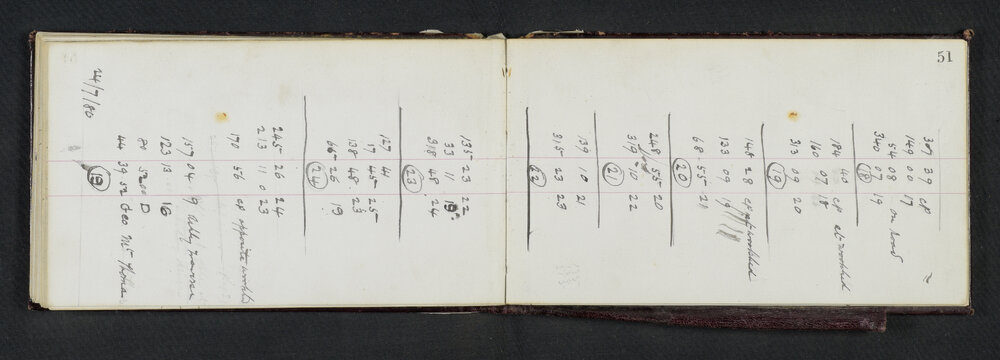 51
307 39 cp
149 09 17
54 08 on road
340 09 19
18
184 40 cp at woolshed
160 07 18
313 09 20
19
148 28 cp opp woolshed
133 09 19
68 55 21
20
248 55 20
319 10 22
21
139 10 21
315 23 23
22
135 23 22
33 11 19
318 48 24
23
127 41
17 45 25
138 48 23
66 26 19
24
245 26 24
213 11 0 23
170 56 cp opposite woolshed
157 04 9 traverse
123 13 16
80 5200 D
44 39 52 Geo
19
24/7/80